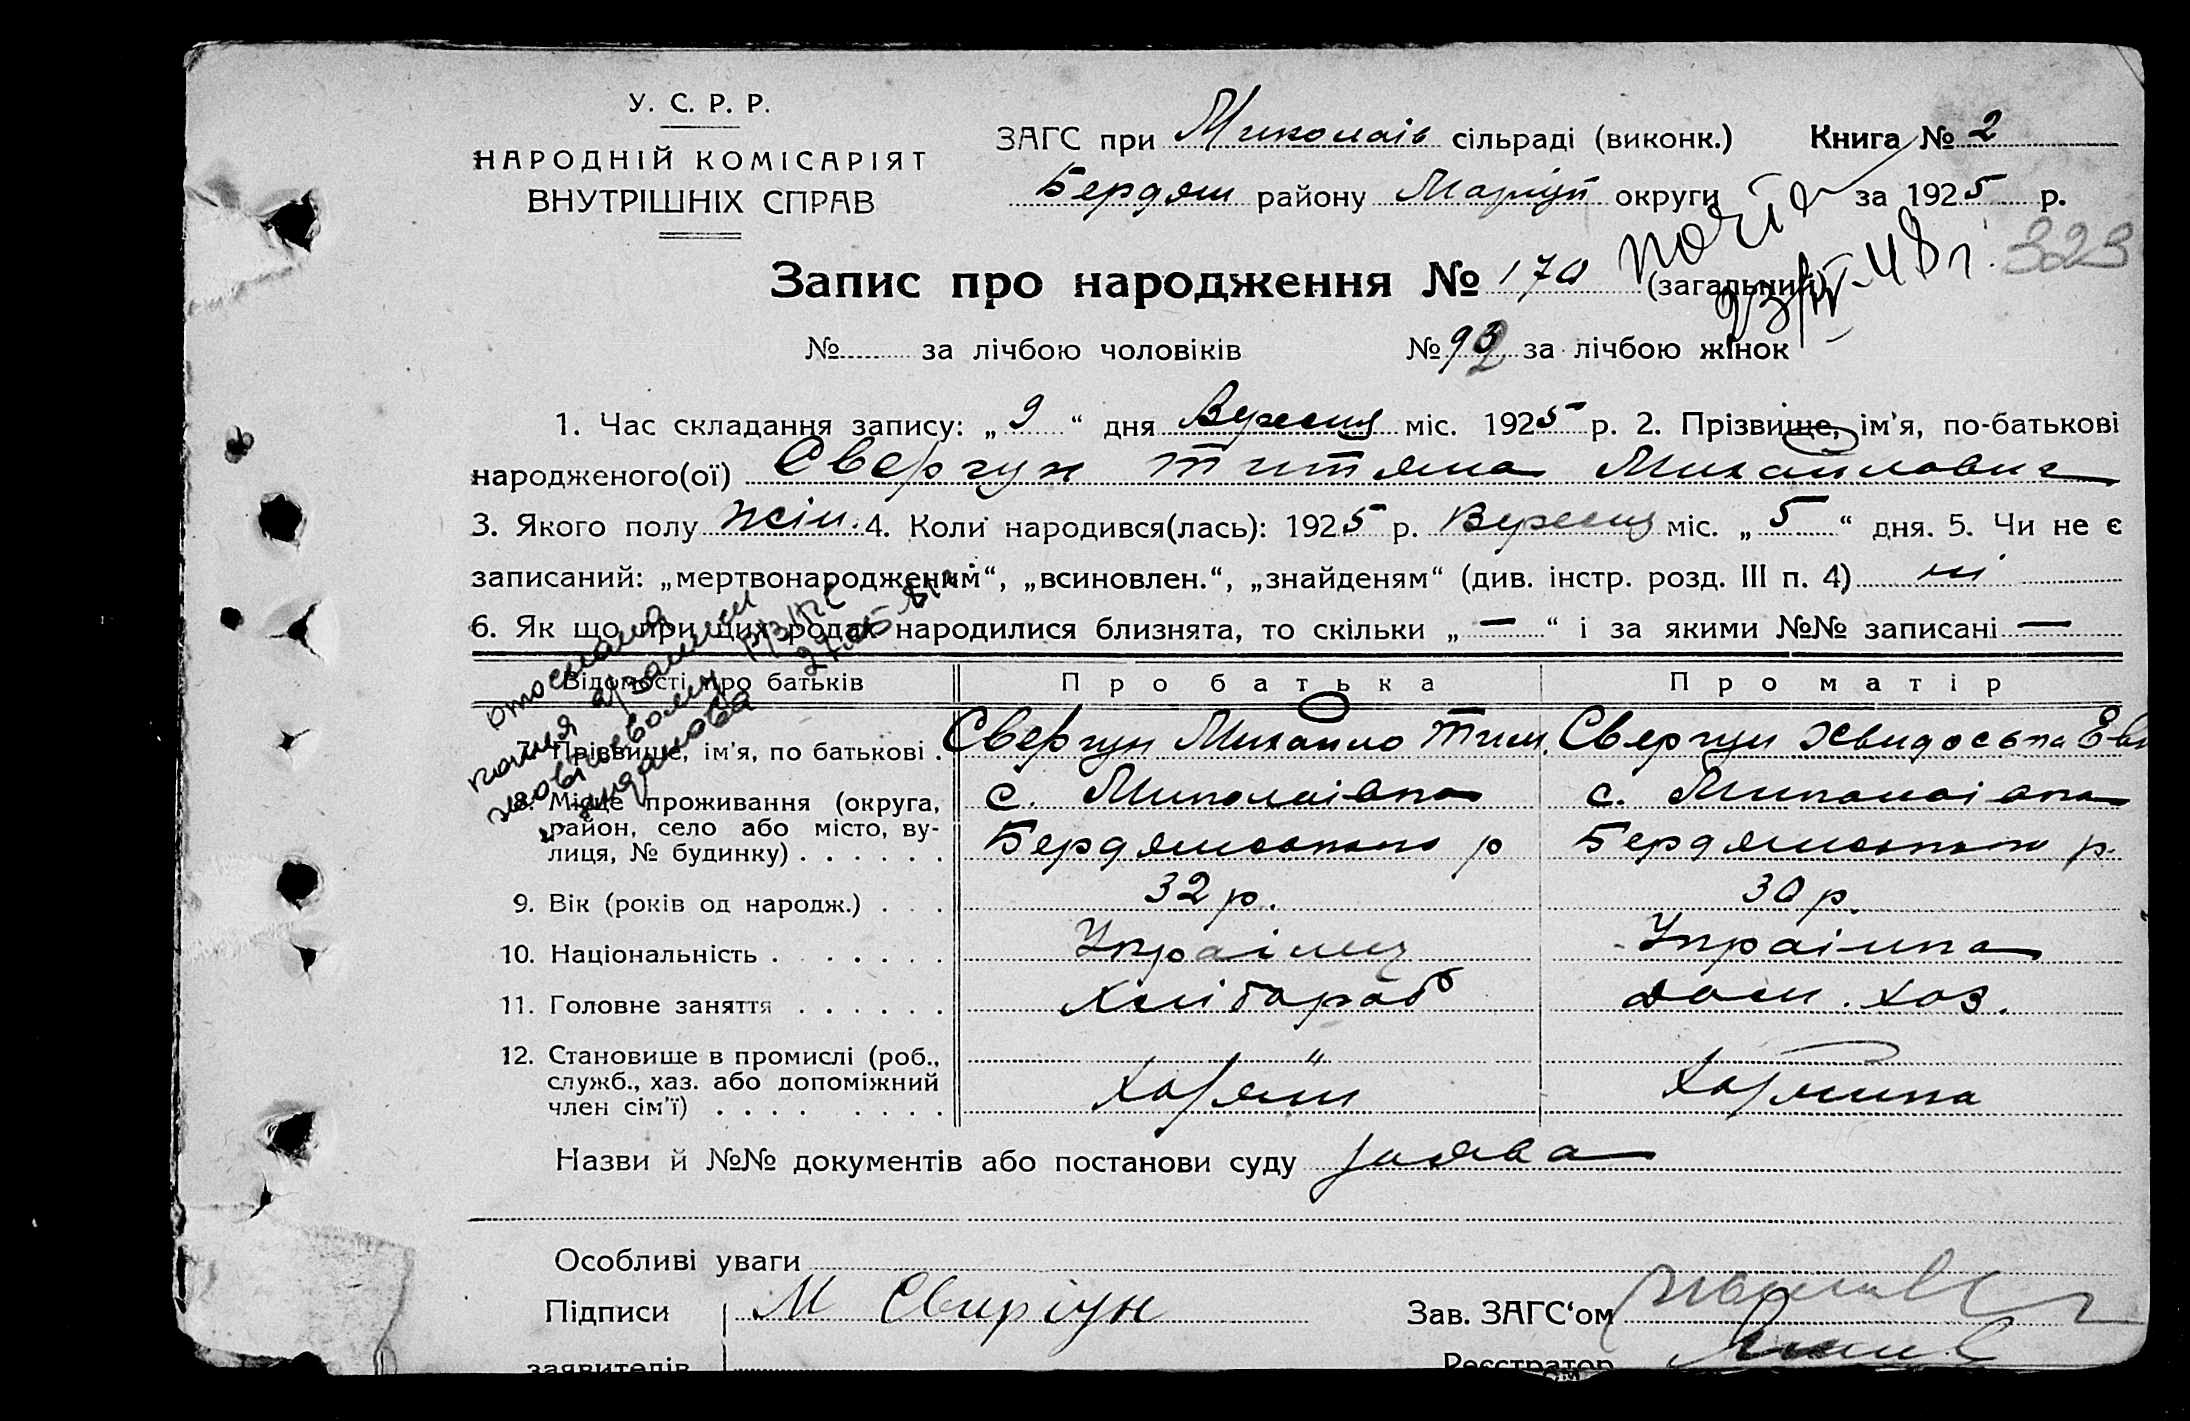 У. С. Р. Р.
НАРОДНІЙ КОМІСАРІЯТ
ВНУТРІШНІХ СПРАВ
ЗАГС при Миколаів сільраді (виконк.) Книга № 2
Бердян району Маріуп округи за 1925 р.
323
Запис про народження № 170 (загальний)
№ за лічбою чоловіків № 92 за лічбою жінок
1. Час складання запису: „ 9 “ дня Вересня міс. 1925 р. 2. Прізвище, ім'я, по-батькові
народженого(ої) Свергун Титяна Михайловна
3. Якого полу жін. 4. Коли народився(лась): 1925 р. Вересня міс. „ 5 “ дня. 5. Чи не є
записаний: „мертвонародженим“, „всиновлен.“, „знайденям“ (див. інстр. розд. III п. 4) ні
6. Як що при цих родах народилися близнята, то скільки „ — “ і за якими №№ записані —
Відомості про батьків Про батька Про матір
7. Прізвище, ім'я, по батькові . Свергун Михайло Тим. Свергун Хвидоська Евд
8. Місце проживання (округа, с. Миколаівка с. Миколаівка
район, село або місто, ву-
лиця, № будинку) . . . . . . Бердянського р Бердянського р.
9. Вік (років од народж.) . . . 32 р. 30 р.
10. Національність . . . . . . . Украінец Украінка
11. Головне заняття . . . . . . Хлібороб дом. хоз.
12. Становище в промислі (роб., "
служб., хаз. або допоміжний
член сім'ї) . . . . . . . . . Хазяин Хазяйка
Назви й №№ документів або постанови суду заява
Особливі уваги
Підписи М Свиргун Зав. ЗАГС'ом
заявителів Реєстратор